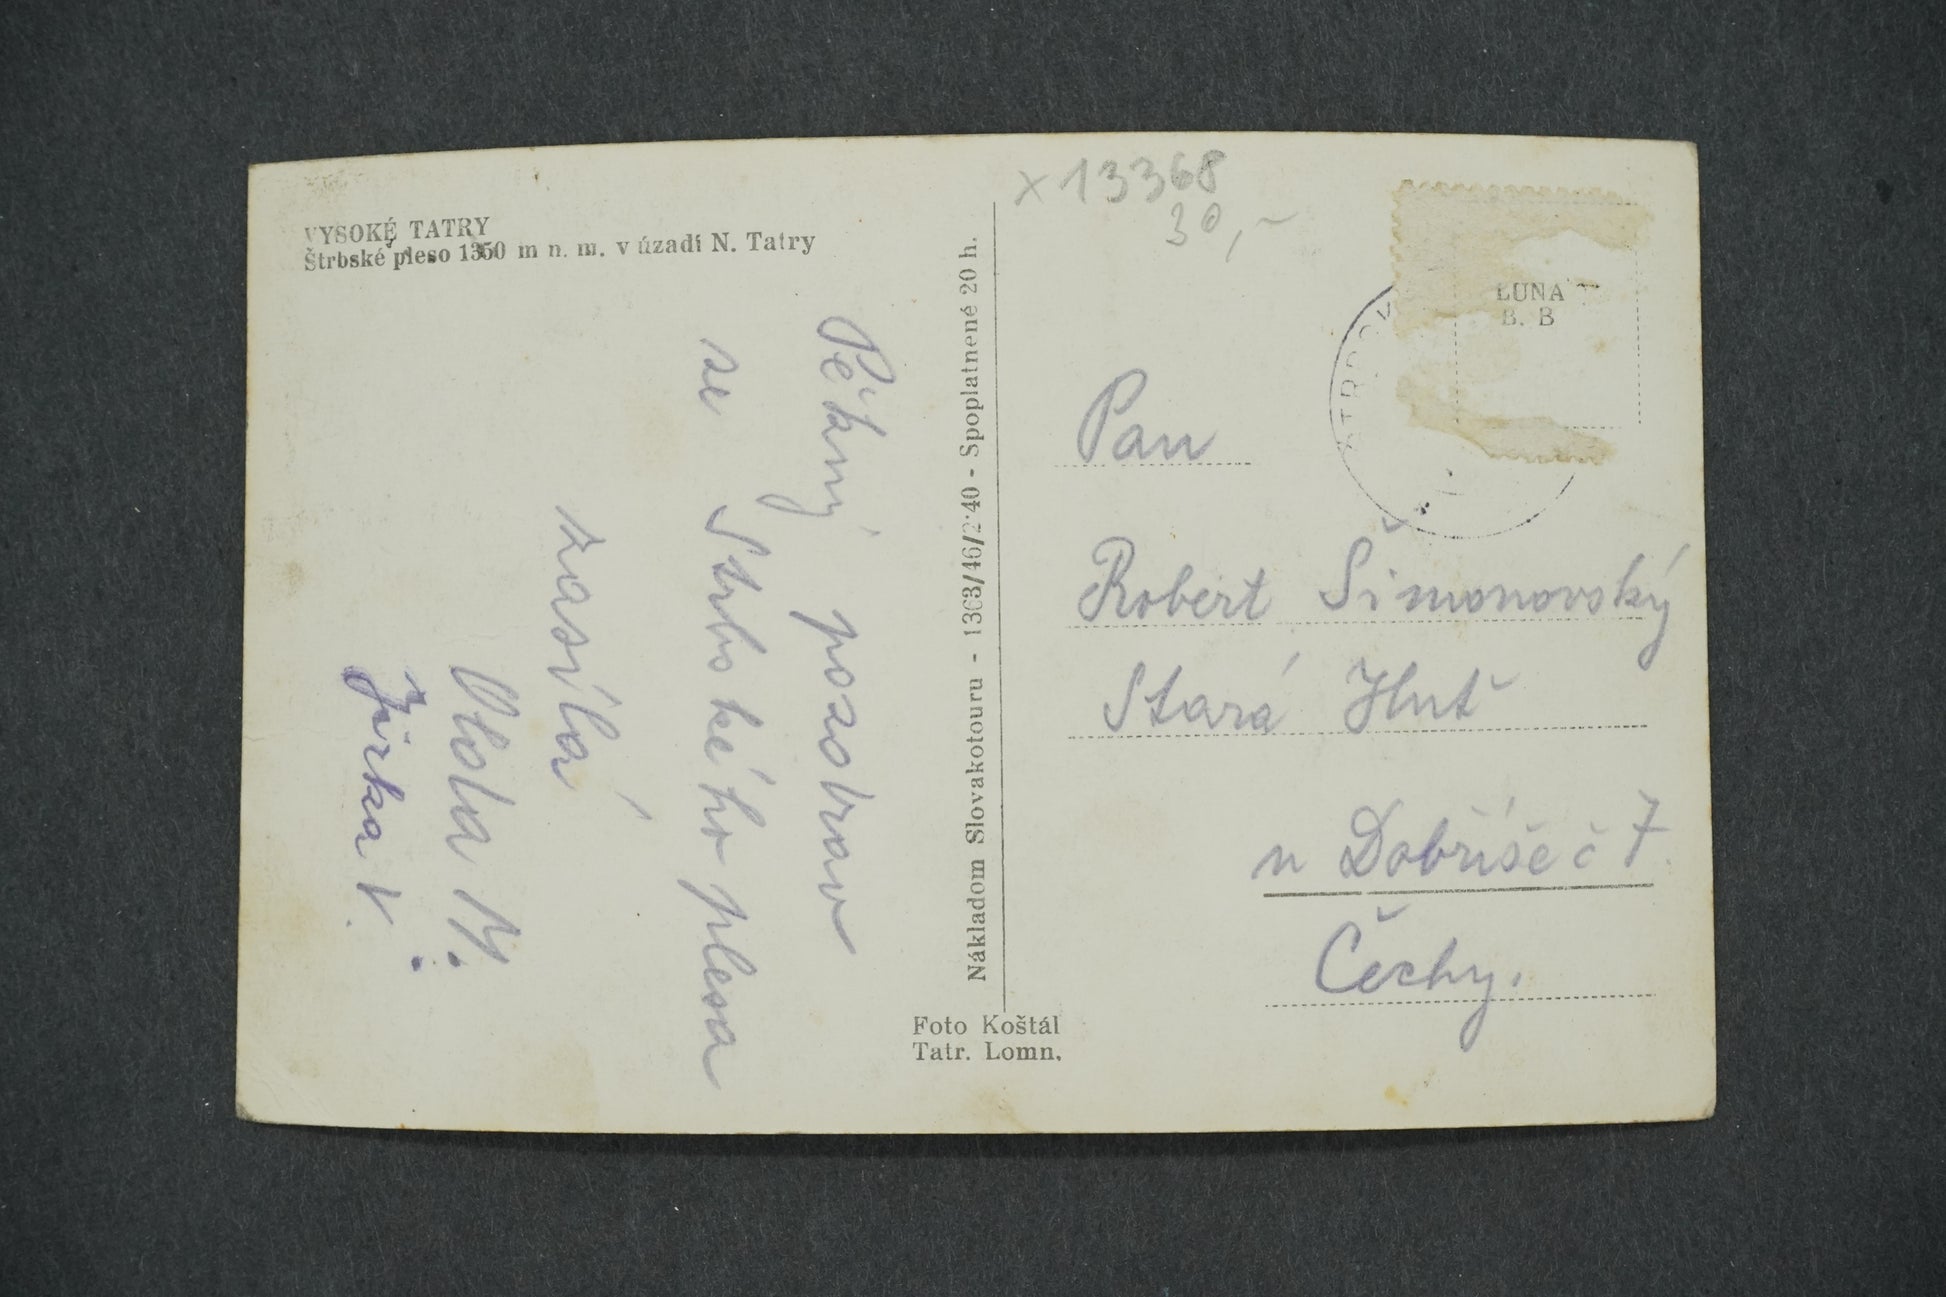 VYSOKÉ TATRY
Štrbské pleso 1350 m n. m. v úzadí N. Tatry
Pěkný pozdrav
se Štrbského plesa
zasílá
Vlasta M.
Jirka V.
Nákladom Slovakotouru - 1363/46/2·40 - Spoplatnené 20 h.
Foto Koštál
Tatr. Lomn.
x 13368
30,-
LUNA
B. B
Pan
Robert Šimonovský
Stará Huť
u Dobříše č 7.
Čechy.